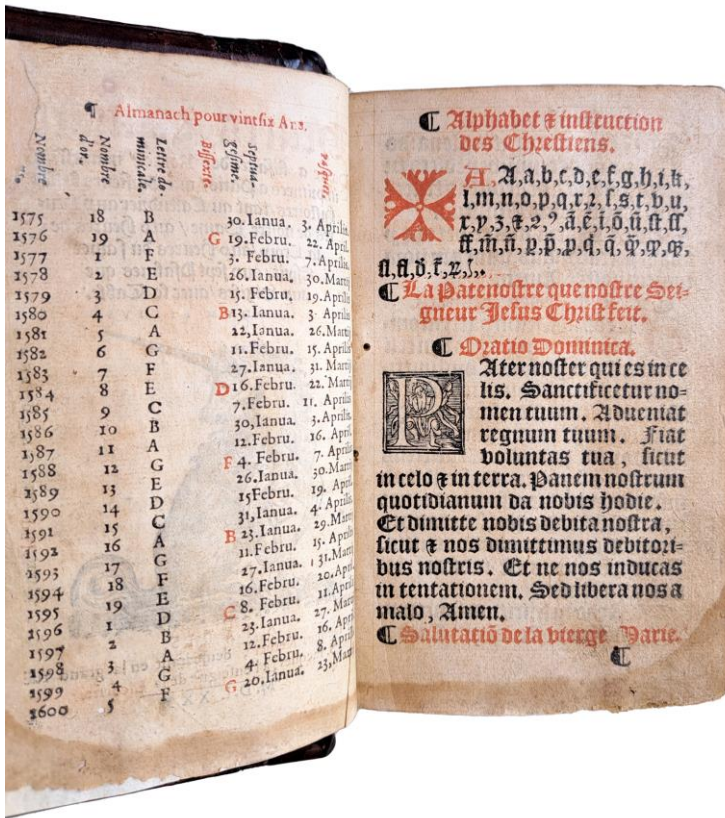 ¶ Almanach pour vintsix Ans.
Nombre Nombre d'or. Lettre dominicale. Bissexte. Septuagesime. Pasques.
1575 18 B 30.Ianua. 3. Aprilis
1576 19 A G 19.Febru. 22. April.
1577 1 F 3. Febru. 7.Aprilis
1578 E 26.Ianua. 30.Martij
1579 3 D 15. Febru. 19. Aprilis
1580 4 C B 13. Ianua. 3. Aprilis
1581 5 A 22,Ianua. 26.Martij
1582 6 G 11.Febru. 15. Aprilis
1583 7 F 27.Ianua. 31. Martij
1584 8 E D 16.Febru. 22. Martij
1585 9 C 7.Febru. 11. Aprilis
1586 10 B 30,Ianua. 3.Aprilis
1587 11 A 12.Febru. 16. April
1588 12 G F 4. Febru. 7. Aprilis
1589 13 E 26.Ianua. 30.Mart
1590 14 D 15Febru. 19. April
1591 15 C 31,Ianua. 4. April
1592 16 A B 23.Ianua. 29.Mart
1593 17 G 11.Febru. 15. April
1594 18 F 27.Ianua. 31.Mart
1595 19 E 16.Febru. 20.April
1596 1 D C 8. Febru. 11.April
1597 2 B 23.Ianua. 27. Mart
1598 3 A 12.Febru. 16. April
1599 4 G 4. Febru. 8. April
1600 5 F G 20.Ianua. 23,Mart
¶ Alphabet ⁊ instruction
des Chrestiens.
A, A,a,b,c,d,e,f,g,h,i,k,
l,m,n,o,p,q,r,ꝛ,ſ,s,t,v,u,
x,y,z,⁊,ꝛ,ꝰ,ã,ẽ,ĩ,õ,ũ,ſt,ſſ,
ff,m̃,ñ,
¶ La Patenostre que nostre Sei-
gneur Jesus Christ feit.
¶ Oratio Dominica.
PAter noster qui es in ce
lis. Sanctificetur no-
men tuum. Adueniat
regnum tuum. Fiat
voluntas tua, sicut
in celo ⁊ in terra. Panem nostrum
quotidianum da nobis hodie.
Et dimitte nobis debita nostra,
sicut ⁊ nos dimittimus debitori-
bus nostris. Et ne nos inducas
in tentationem. Sed libera nos a
malo, Amen.
¶ Salutatiõ de la vierge Marie.
¶